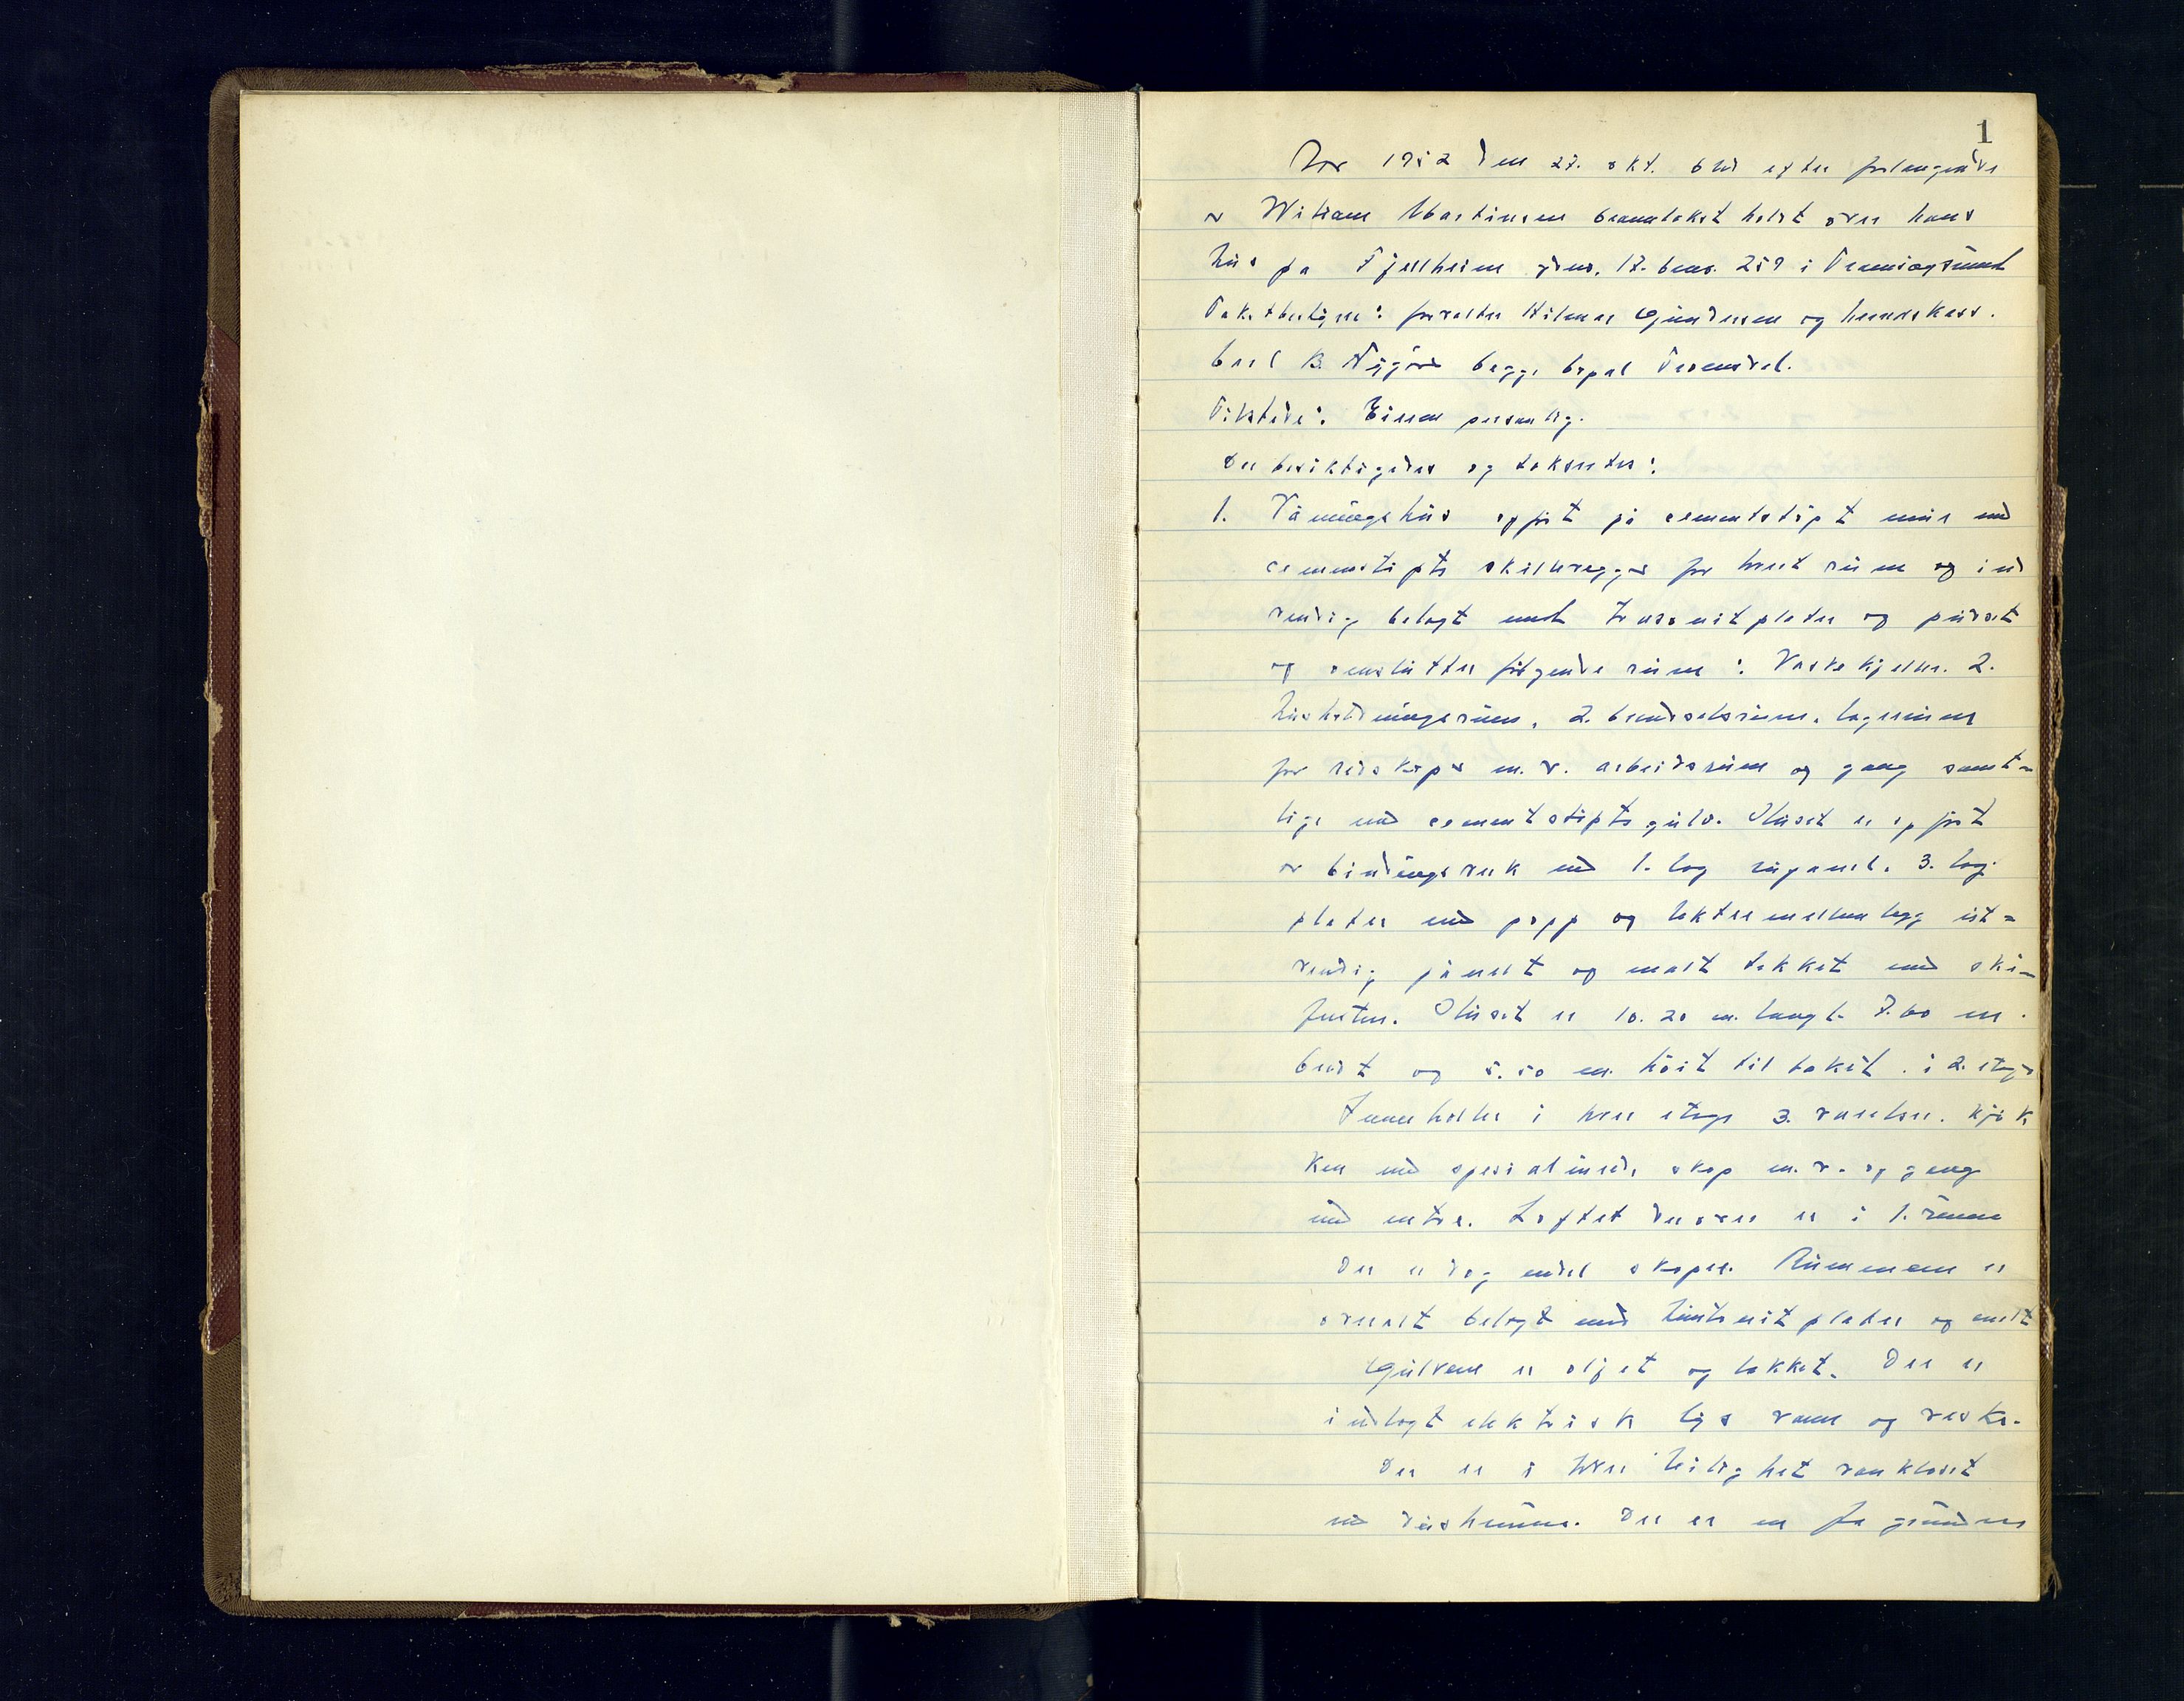 1
År 1952 den 27. okt. blev efter forlangende
av William Martinsen branntakst holdt over hans
hus på Fjellheim gnr. 17. bnr. 259 i Tromsøysund
Takstbestyrere: forvalter Hilmar Gundersen og herredskass.
Carl B. Nygård begge bopel Tromsdal.
Tilstede: Eieren personlig.
Der besiktigedes og taksertes:
1. Våningshus opført på cementstøpt mur med
cementstøpte skillevegger for hvert rum og ind
vendig belagt med træsonitplater og pudset
og omslutter følgende rum: Vaskekjeller. 2.
husholdningsrum, 2. brendselsrum. lagerrum
for redskaper m.v. arbeidsrum og gang samt-
lige med cementstøpte gulv. Huset er opført
av bindingsverk med 1. lag rupanel. 3. lag
plater med papp og lektremellemlegg ut=
vendig panelt og malt tekket med ski-
fersten. Huset er 10.20 m. langt. 7.60 m.
bredt og 5.50 m. høit til taket. i 2. etage
Inneholder i hver etage 3. værelser. kjøk
ken med spesialinnr. skap m.v. og gang
med entre. Loftet derover er i 1. rum
Der er dog endel skaper. Rummene er
overalt belagt med huntonitplater og malt
Gulvene er oljet og lakket. Der er
indlagt elektrisk lys vann og vask.
Der er i hver leilighet vanklosett
med dusjrum. Der er en fra grunden